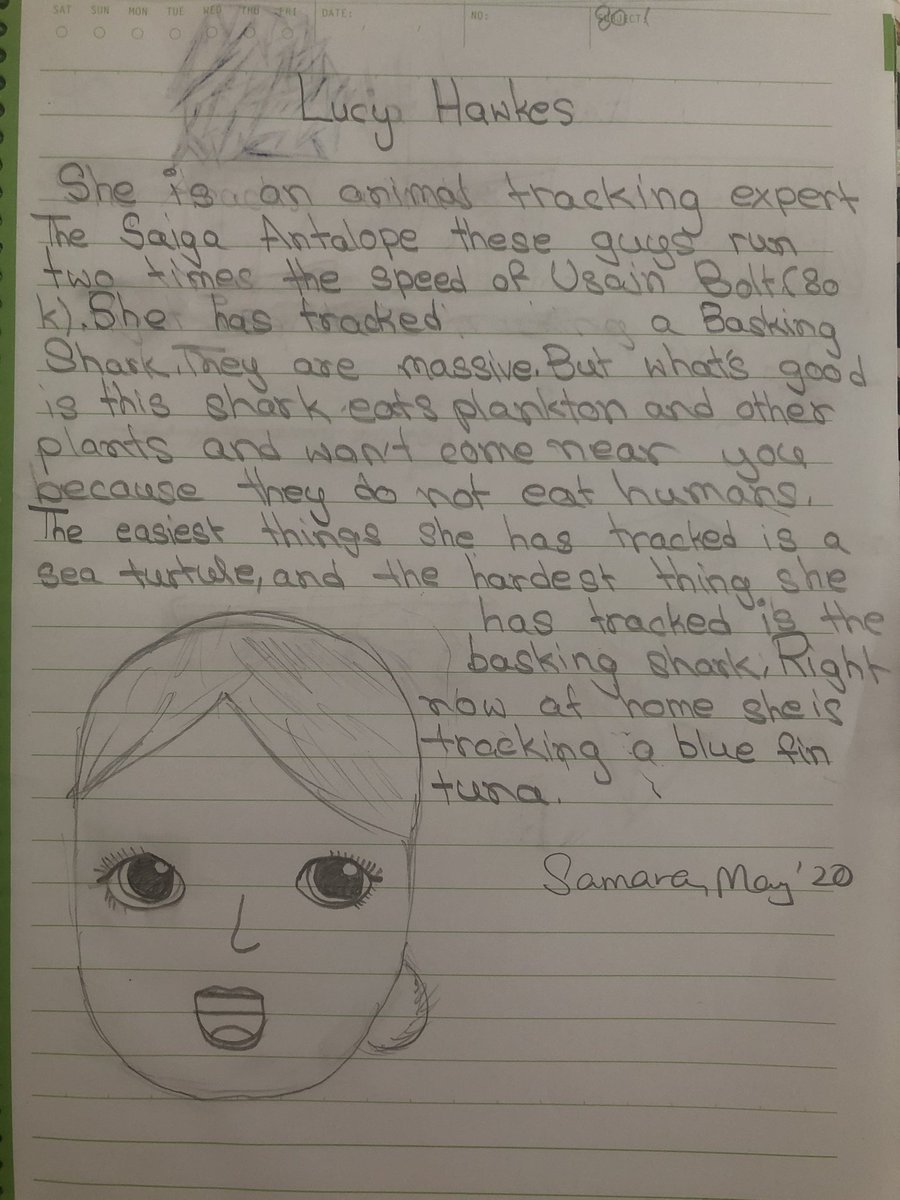 SAT SUN MON TUE WED THU FRI DATE: NO: SUBJECT:
Lucy Hawkes
She is an animal tracking expert
The Saiga Antalope these guys run
two times the speed of Usain Bolt(80
k).She has tracked a Basking
Shark.They are massive.But what's good
is this shark eats plankton and other
plants and won't come near you
because they do not eat humans.
The easiest things she has tracked is a
sea turtule, and the hardest thing she
has tracked is the
basking shark. Right
now at home she is
tracking a blue fin
tuna.
Samara, May '20